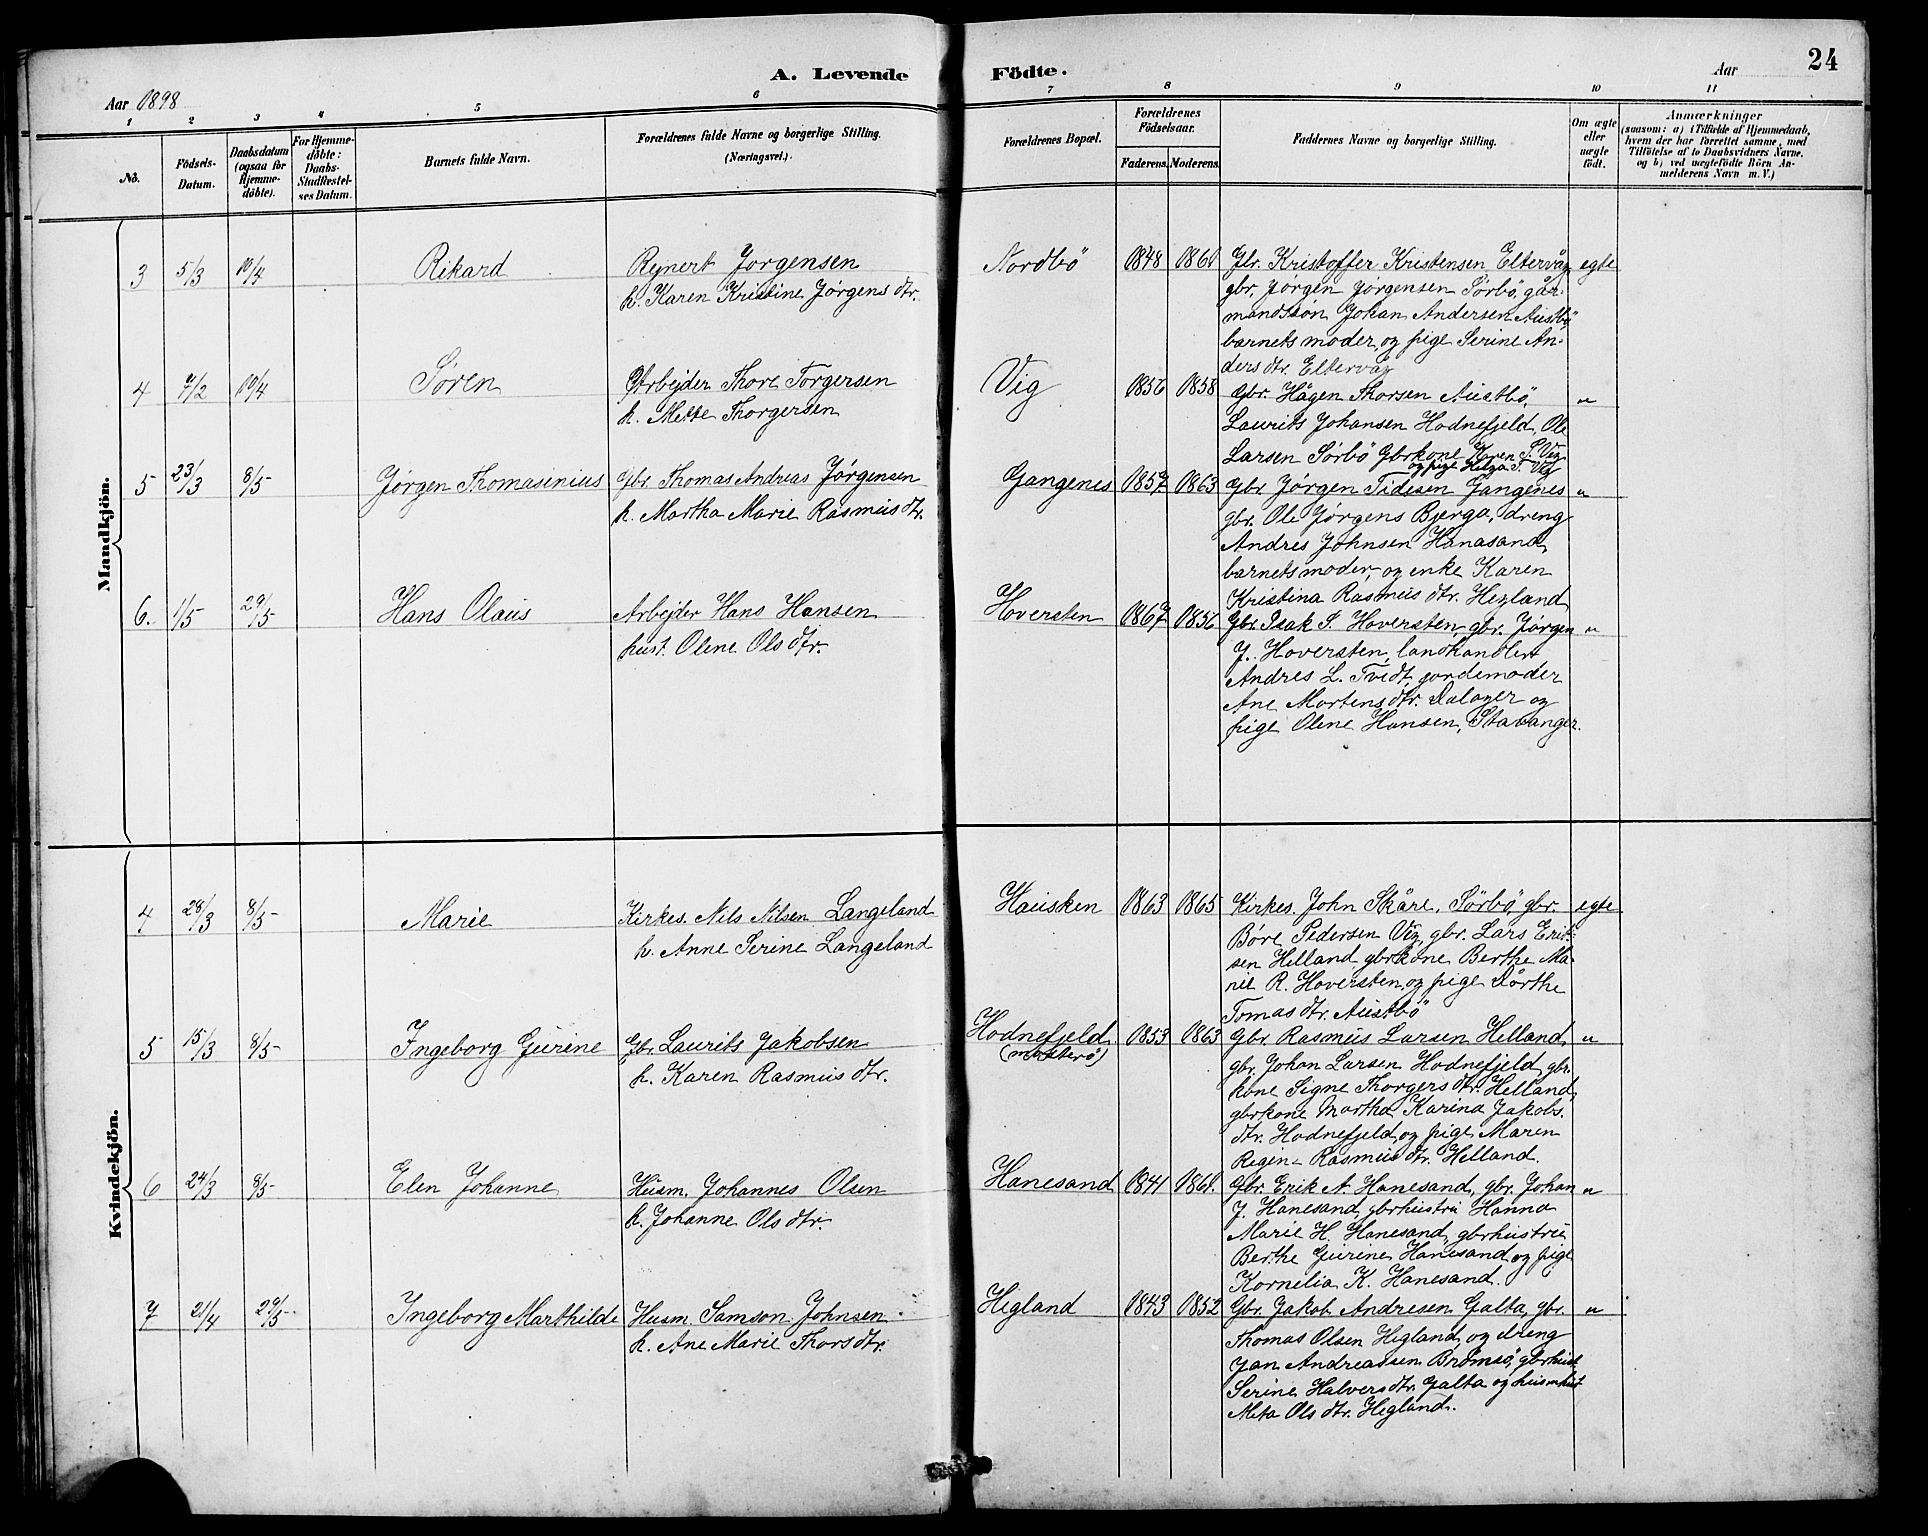 A. Levende Födte.
Aar 24
Aar 1898
1 2 3 4 5 6 7 8 9 10 11
No. Födsels-Datum. Daabsdatum (ogsaa for Hjemme-döbte). For Hjemme-döbte: Daabs-Stadfæstel-ses Datum. Barnets fulde Navn. Forældrenes fulde Navne og borgerlige Stilling. (Næringsvei.) Forældrenes Bopæl. Forældrenes Födselsaar. Faderens. Moderens. Faddernes Navne og borgerlige Stilling. Om ægte eller uægte födt. Anmærkninger (saasom: a) i Tilfælde af Hjemmedaab, hvem der har forrettet samme, med Tilföielse af to Daabsvidners Navne, og b) ved uægtefödte Börn An-melderens Navn m. V.)
Mandkjön.
3 5/3 10/4 Rikard Rejnert Jørgensen Nordbö 1848 1860 Gbr. Kristoffer Kristensen Eltervåg egte
h. Karen Kristine Jørgens dtr. gbr. Jørgen Jørgensen Sørbö, går-
mandssøn Johan Andersen Austbö
barnets moder, og pige Serine An-
ders dtr. Eltervåg
4 7/2 10/4 Søren Arbejder Thore Torgersen Vig 1856 1858 Gbr. Hågen Thorsen Austbö, "
h. Mette Thorgersen Laurits Johansen Hodnefjeld, Ole
Larsen Sørbö Gbrkone Karen S. Vig
og pige Helga T. Vig
5 23/3 8/5 Jørgen Thomasinius Gbr. Thomas Andreas Jørgensen Gangenes 1857 1863 Gbr. Jørgen Tidesen Gangenes "
h. Martha Marie Rasmus dtr. gbr. Ole Jørgens Bjerga, dreng
Andres Johnsen Hanasand
barnets moder, og enke Karen
Kristina Rasmus dtr. Hegland
6. 1/5 29/5 Hans Olaus Arbejder Hans Hansen Hoversten 1867 1856 Gbr. Isak S. Hoversten, gbr. Jørgen "
hust. Olene Ols dtr. J. Hoversten, landhandler
Andres L. Tvedt, jordemoder
Ane Mortens dtr. Dalager og
pige Olene Hansen, Stavanger.
Kvindekjön.
4 28/3 8/5 Marie Kirkes. Nils Nilsen Langeland Hausken 1863 1865 Kirkes. John Skåre, Sørbö, gbr. egte
h. Anne Serine Langeland Børe Pedersen Vig, gbr. Lars Erik-
sen Helland, gbrkone Berthe Ma-
rie R. Hoversten, og pige Dørthe
Tomas dtr. Austbö
5 15/3 8/5 Ingeborg Gurine Gbr. Laurits Jakobsen Hodnefjeld 1853 1863 Gbr. Rasmus Larsen Helland, "
h. Karen Rasmus dtr. (mosterö) gbr. Johan Larsen Hodnefjeld, gbr.
kone Signe Thorgers dtr. Helland,
gbrkone Martha Karina Jakobs.
dtr. Hodnefjeld, og pige Maren
Regine Rasmus dtr. Helland.
6 24/3 8/5 Elen Johanne Husm. Johannes Olsen Hanesand 1841 1860. Gbr. Erik A. Hanesand, gbr. Johan "
h. Johanne Ols dtr. J. Hanesand, gbrhustru Hanna
Marie H. Hanesand, gbrhustru
Berthe Gurine Hanesand og pige
Kornelia K. Hanesand.
7 21/4 29/5 Ingeborg Marthilde Husm. Samson Johnsen Hegland 1843 1852 Gbr. Jakob Andresen Galta, gbr. "
h. Ane Marie Thors dtr. Thomas Olsen Hegland, og dreng
Jan Andreassen Bromsö, gbrhust.
Serine Halvers dtr. Galta og husmhust
Meta Ols dtr. Hegland.